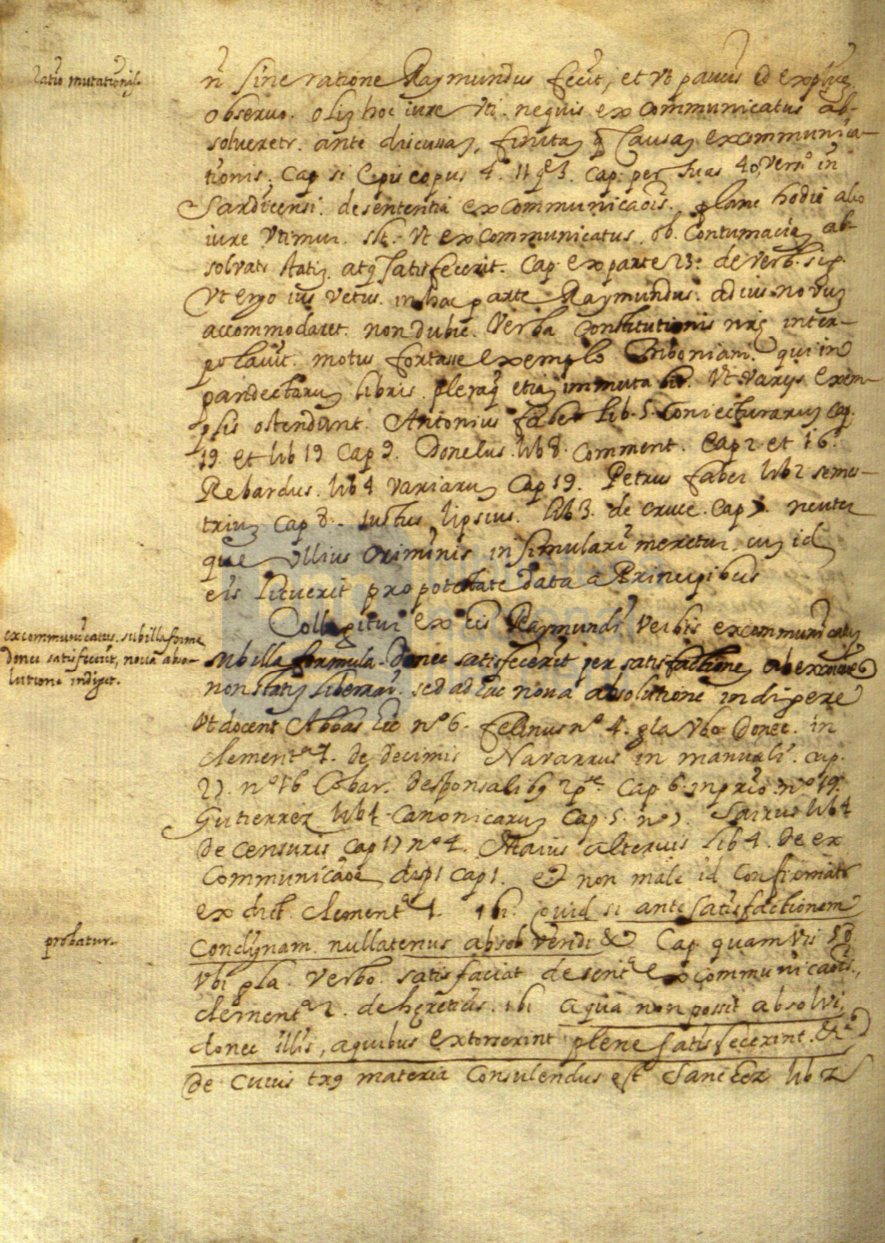 ratio mutationis.
n̄ sine ratione Raymundus fecit, et vt paucis id explicē
obseruo. olim hoc iure vti. nequis excommunicatus ab-
solueretr. ante discussaȝ, finitaȝ q̄ causaȝ excommunica-
tionis. Cap si Episcopus 4. 11 q̄ 3. cap. per tuas 40. vers.º in
Sardicensi. de sententia excommunicaōis. plane hodie alio
iure vtimur. sclt. vt excommunicatus ob. Contumaciaȝ ab-
solvatr statiȝ. atq̄ satisfecerit. Cap. ex parte 23. de verb. sig.
Vt ergo ius vetus. in hac parte Raymundus. ad ius novuȝ
accommodaret. non dubie. Verba Constitutionis nr̄ȩ inter-
polauit. motus fortasse exemplo Triboniani. qui in
pandectaruȝ libris. pleraq̄ etiaȝ immuta vit. Vt varijs exem-
plis ostendunt. Antonius faber lib. 5. coniecturaruȝ cap.
19. et lib 19 Cap 9. Donelus. lib 8. comment. Cap 2 et 16.
Rebardus. lib 4 variaruȝ Cap 19. Petrus faber lib 2 semes-
triuȝ Cap 8. Iustus lipsius. lib 3. de cruce. Cap 7. neuter
que vllius criminis insimulari meretur. cuȝ id
eis licuerit pro potestate data a Principibus
excommunicatus. sub illa forma
donec satisfecerit, noua abso-
lutione indiget.
Colligitur ex eis Raymundi verbis excommunicatuȝ
sub illa formula. Donec satisfecerit per satisfactionē ab excōiōne
non statiȝ liberari. sed ad hȩc noua absolutione indigere
Vt docent Abbas hic nº 6. felinus nº 4. gla vbo Donec. in
clement.ª 1. de decimis Navarrus in manuali. cap.
27. nº 16 Cobar. de sponsalibȝ 2 p.te Cap 6. in prīo. nº 19.
Gutierrez lib 1. Canonicaruȝ Cap. 5. nº 7. Sairus lib 1
de censuris Cap 17 nº 4. Maius alterius lib 4. de ex
communicāōe disp 1 cap 1. et non male id confirmatr
ex dict. clement.ª 1. ibi. quid si ante satisfactionem
probatur.
condignam nullatenus absolvendi & Cap quamvis
vbi gla. verbo. satisfaciat de sent.ª excommunicaōis.
clement.ª 2. de hȩreticis. ibi a qua non possit absolvi
donec illis, a quibus extorserint plene satisfecerint. &ª
de cuius rȩ materia Consulendus est Sanchez lib 2